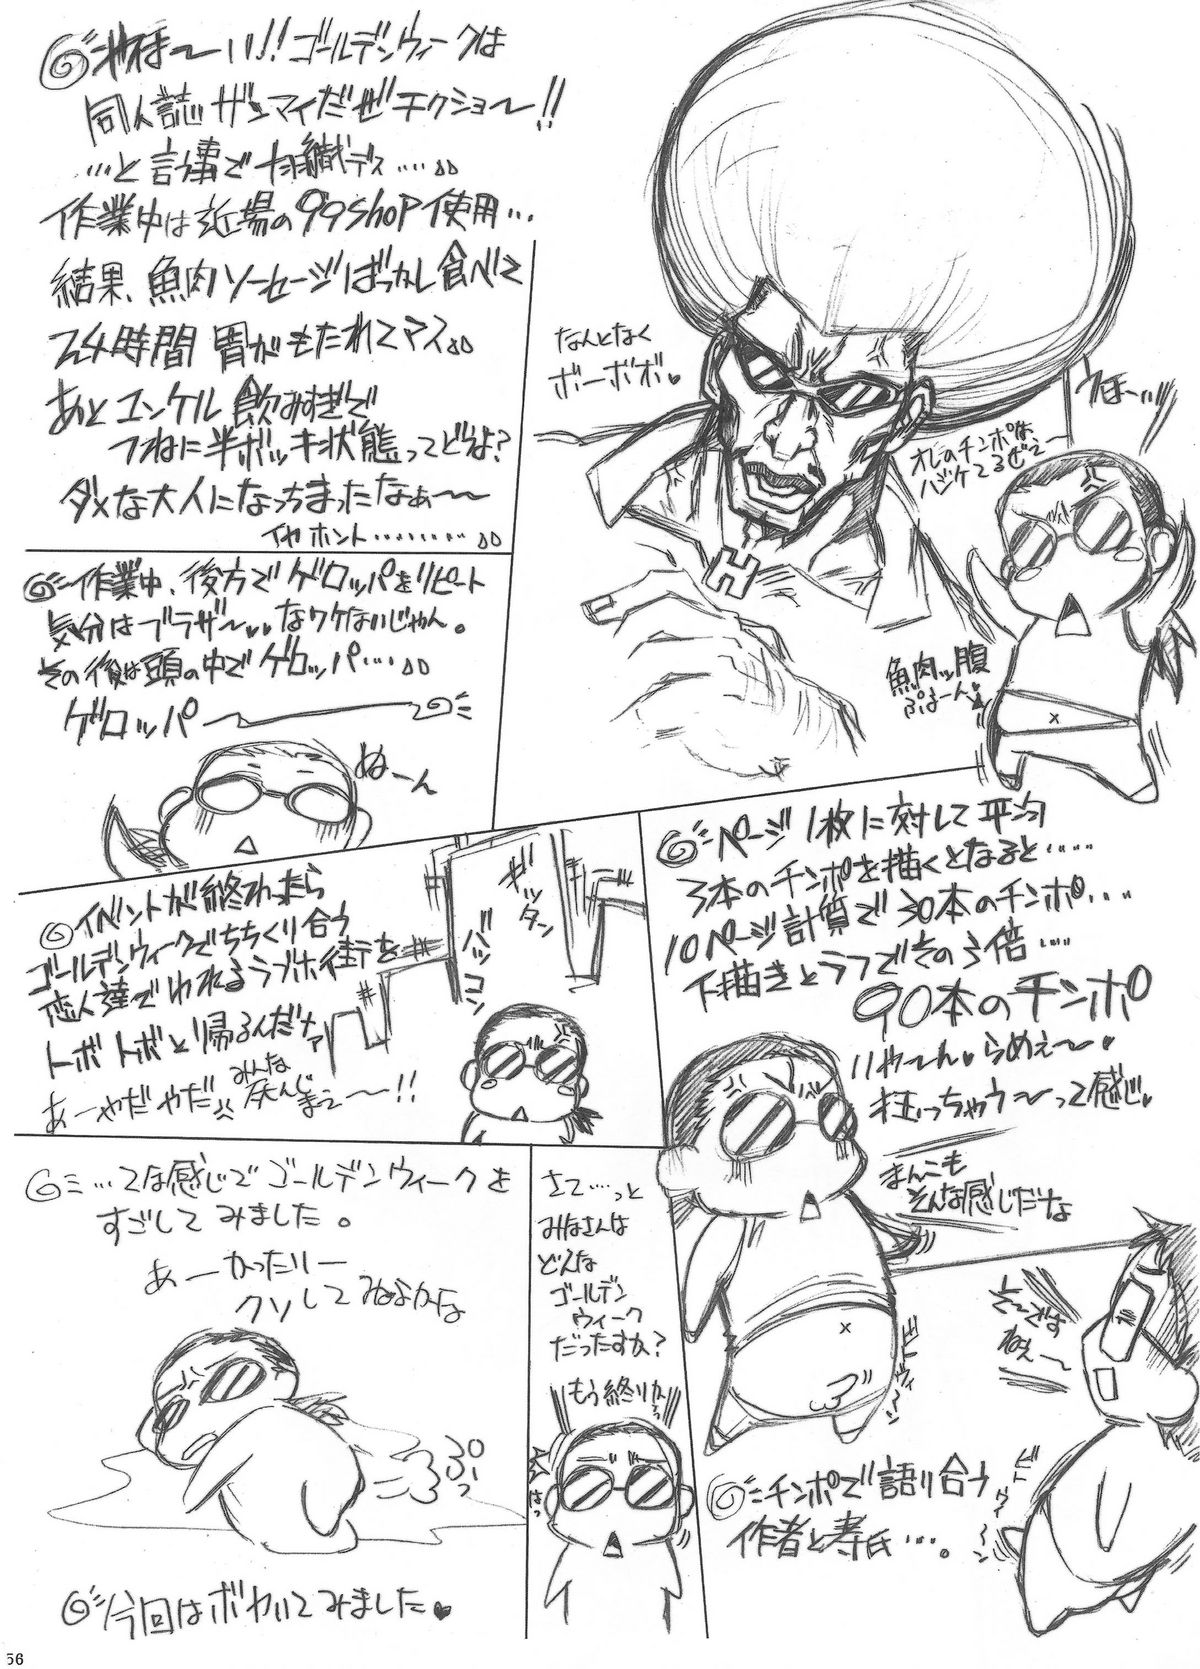 やほ〜い!!ゴールデンウィークは
同人誌ザンマイだぜチクショ〜!!
…と言う事で羽織デス……
作業中は近場の99shop使用…
結果、魚肉ソーセージばっかし食べて
24時間胃がもたれてマス
あとユンケル飲みすぎで
つねに半ボッキ状態ってどうよ?
ダメな大人になっちまったなぁ〜
イヤホント………
なんとなく
ボーボボ♥
うほーッ!!
オレのチンポは
ハジケてるぜ〜
魚肉ッ腹
ぷよーん♥
作業中、後方でゲロッパをリピート
気分はブラザ〜♥♥なワケないじゃん。
その後は頭の中でゲロッパ……
ゲロッパ〜
ぬーん
ページ1枚に対して平均
3本のチンポを描くとなると……
10ページ計算で30本のチンポ…
下描きとラフでその3倍……
90本のチンポ
いや〜ん♥らめぇ〜♥
狂っちゃう〜って感じ♥
まんこも
そんな感じだなよ
イベントが終わったら
ゴールデンウィークでちちくり合う
恋人達であふれるラブホ街を
トボトボと帰るんだナァ
あーやだやだ
みんな
死んじまえ〜!!
ギッタン
バッコン
…てな感じでゴールデンウィークを
すごしてみました。
あーかったりー
クソしてねよかな
ぷぅっ
さて…っと
みなさんは
どんな
ゴールデン
ウィーク
だったすか?
もう終りかっ
はっ
ビ
ウィーン
そーですねぇ〜
ビ
ウィーン
チンポで語り合う
作者と寿氏…。
今回はボヤいてみました♥
56